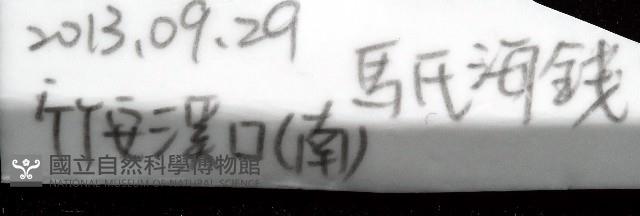 2013.09.29
馬氏海錢
竹安溪口(南)
國立自然科學博物館
NATIONAL MUSEUM OF NATURAL SCIENCE